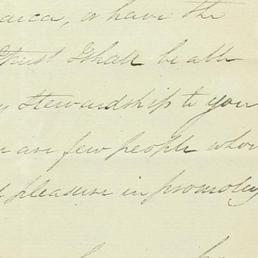 or have the
trust I shall be able
Stewardship to you
are few people whom
pleasure in promoting